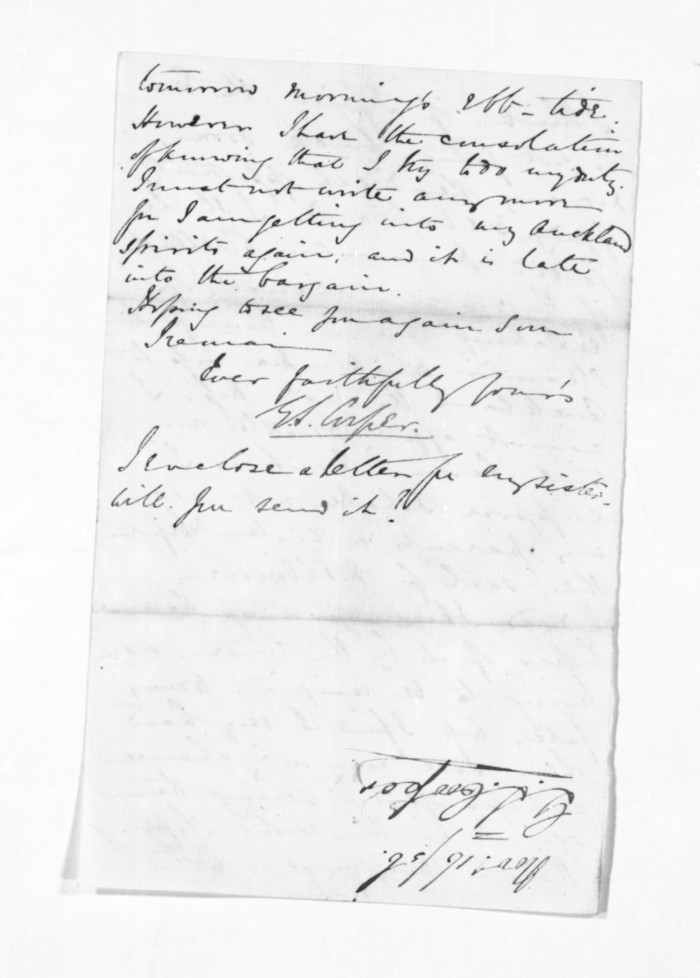 tomorrow morning's ebb-tide.
However I have the consolation
of knowing that I try to do my duty.
I must not write any more
for I am getting into my Auckland
spirits again, and it is late
into the bargain.
Hoping to see you again soon
I remain
Ever faithfully yours
G.S. Cooper.
I enclose a letter for my sister-
will you send it?
G. S. Cooper
Novr. 16/56.